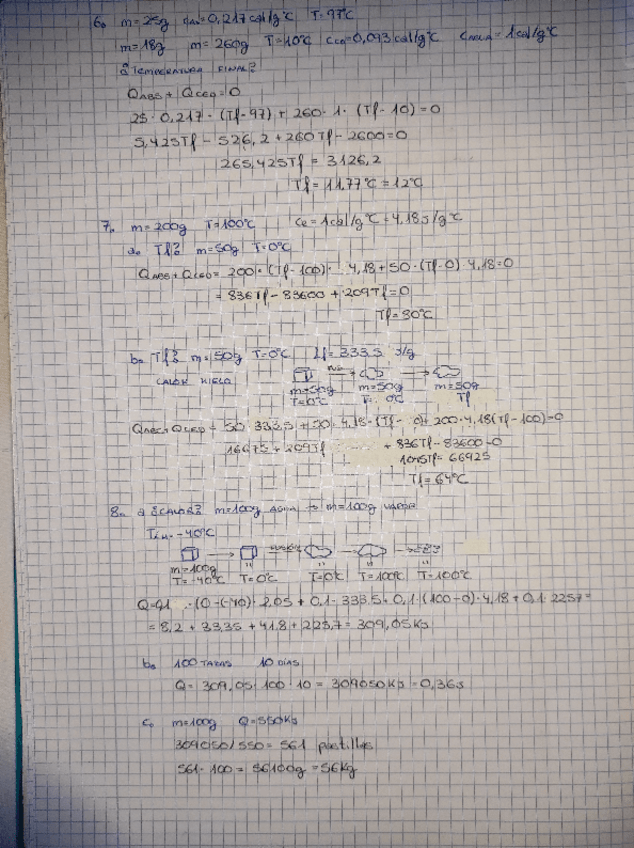 6. m=25g CAl=0,217 cal/g°C T=97°C
m=18g m=260g T=10°C CCO=0,093 cal/g°C CAGUA=1cal/g°C
¿TEMPERATURA FINAL?
QABS+QCED=0
25·0,217·(Tf-97)+260·1·(Tf-10)=0
5,425Tf-526,2+260Tf-2600=0
265,425Tf=3126,2
Tf=11,77°C=12°C
7. m=200g T=100°C Ce=1cal/g°C=4,18J/g°C
a. Tf? m=50g T=0°C
QABS+QCED=200·(Tf-100)·4,18+50·(Tf-0)·4,18=0
=836Tf-83600+209Tf=0
Tf=80°C
b. Tf? m=50g T=0°C Lf=333,5 J/g
CALOR HIELO
m=50g m=50g m=50g
T=0°C T=0°C Tf
QABS+QCED=50·333,5+50·4,18·(Tf-0)+200·4,18(Tf-100)=0
16675+209Tf+836Tf-83600=0
1045Tf=66925
Tf=64°C
8. a ¿CALOR? m=100g AGUA → m=100g VAPOR
Tin=-40°C
m=100g " " " "
T=-40°C T=0°C T=0°C T=100°C T=100°C
Q=0,1·(0-(-40))·2,05+0,1·333,5+0,1·(100-0)·4,18+0,1·2257=
=8,2+33,35+41,8+225,7=309,05KJ
b. 100 TAZAS 10 DÍAS
Q=309,05·100·10=309050KJ=0,36J
c. m=100g Q=550KJ
309050/550=561 pastillas
561·100=56100g=56Kg